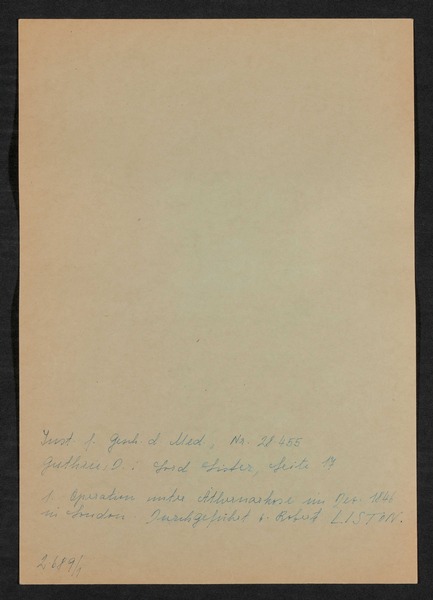 Inst f. Gesch. d Med, Nr. 28455
Guthrie, D.: Lord Lister, Seite 17
1. Operation unter Äthernarkose im Dez. 1846
in London. Durchgeführt v. Robert LISTON.
2689/1